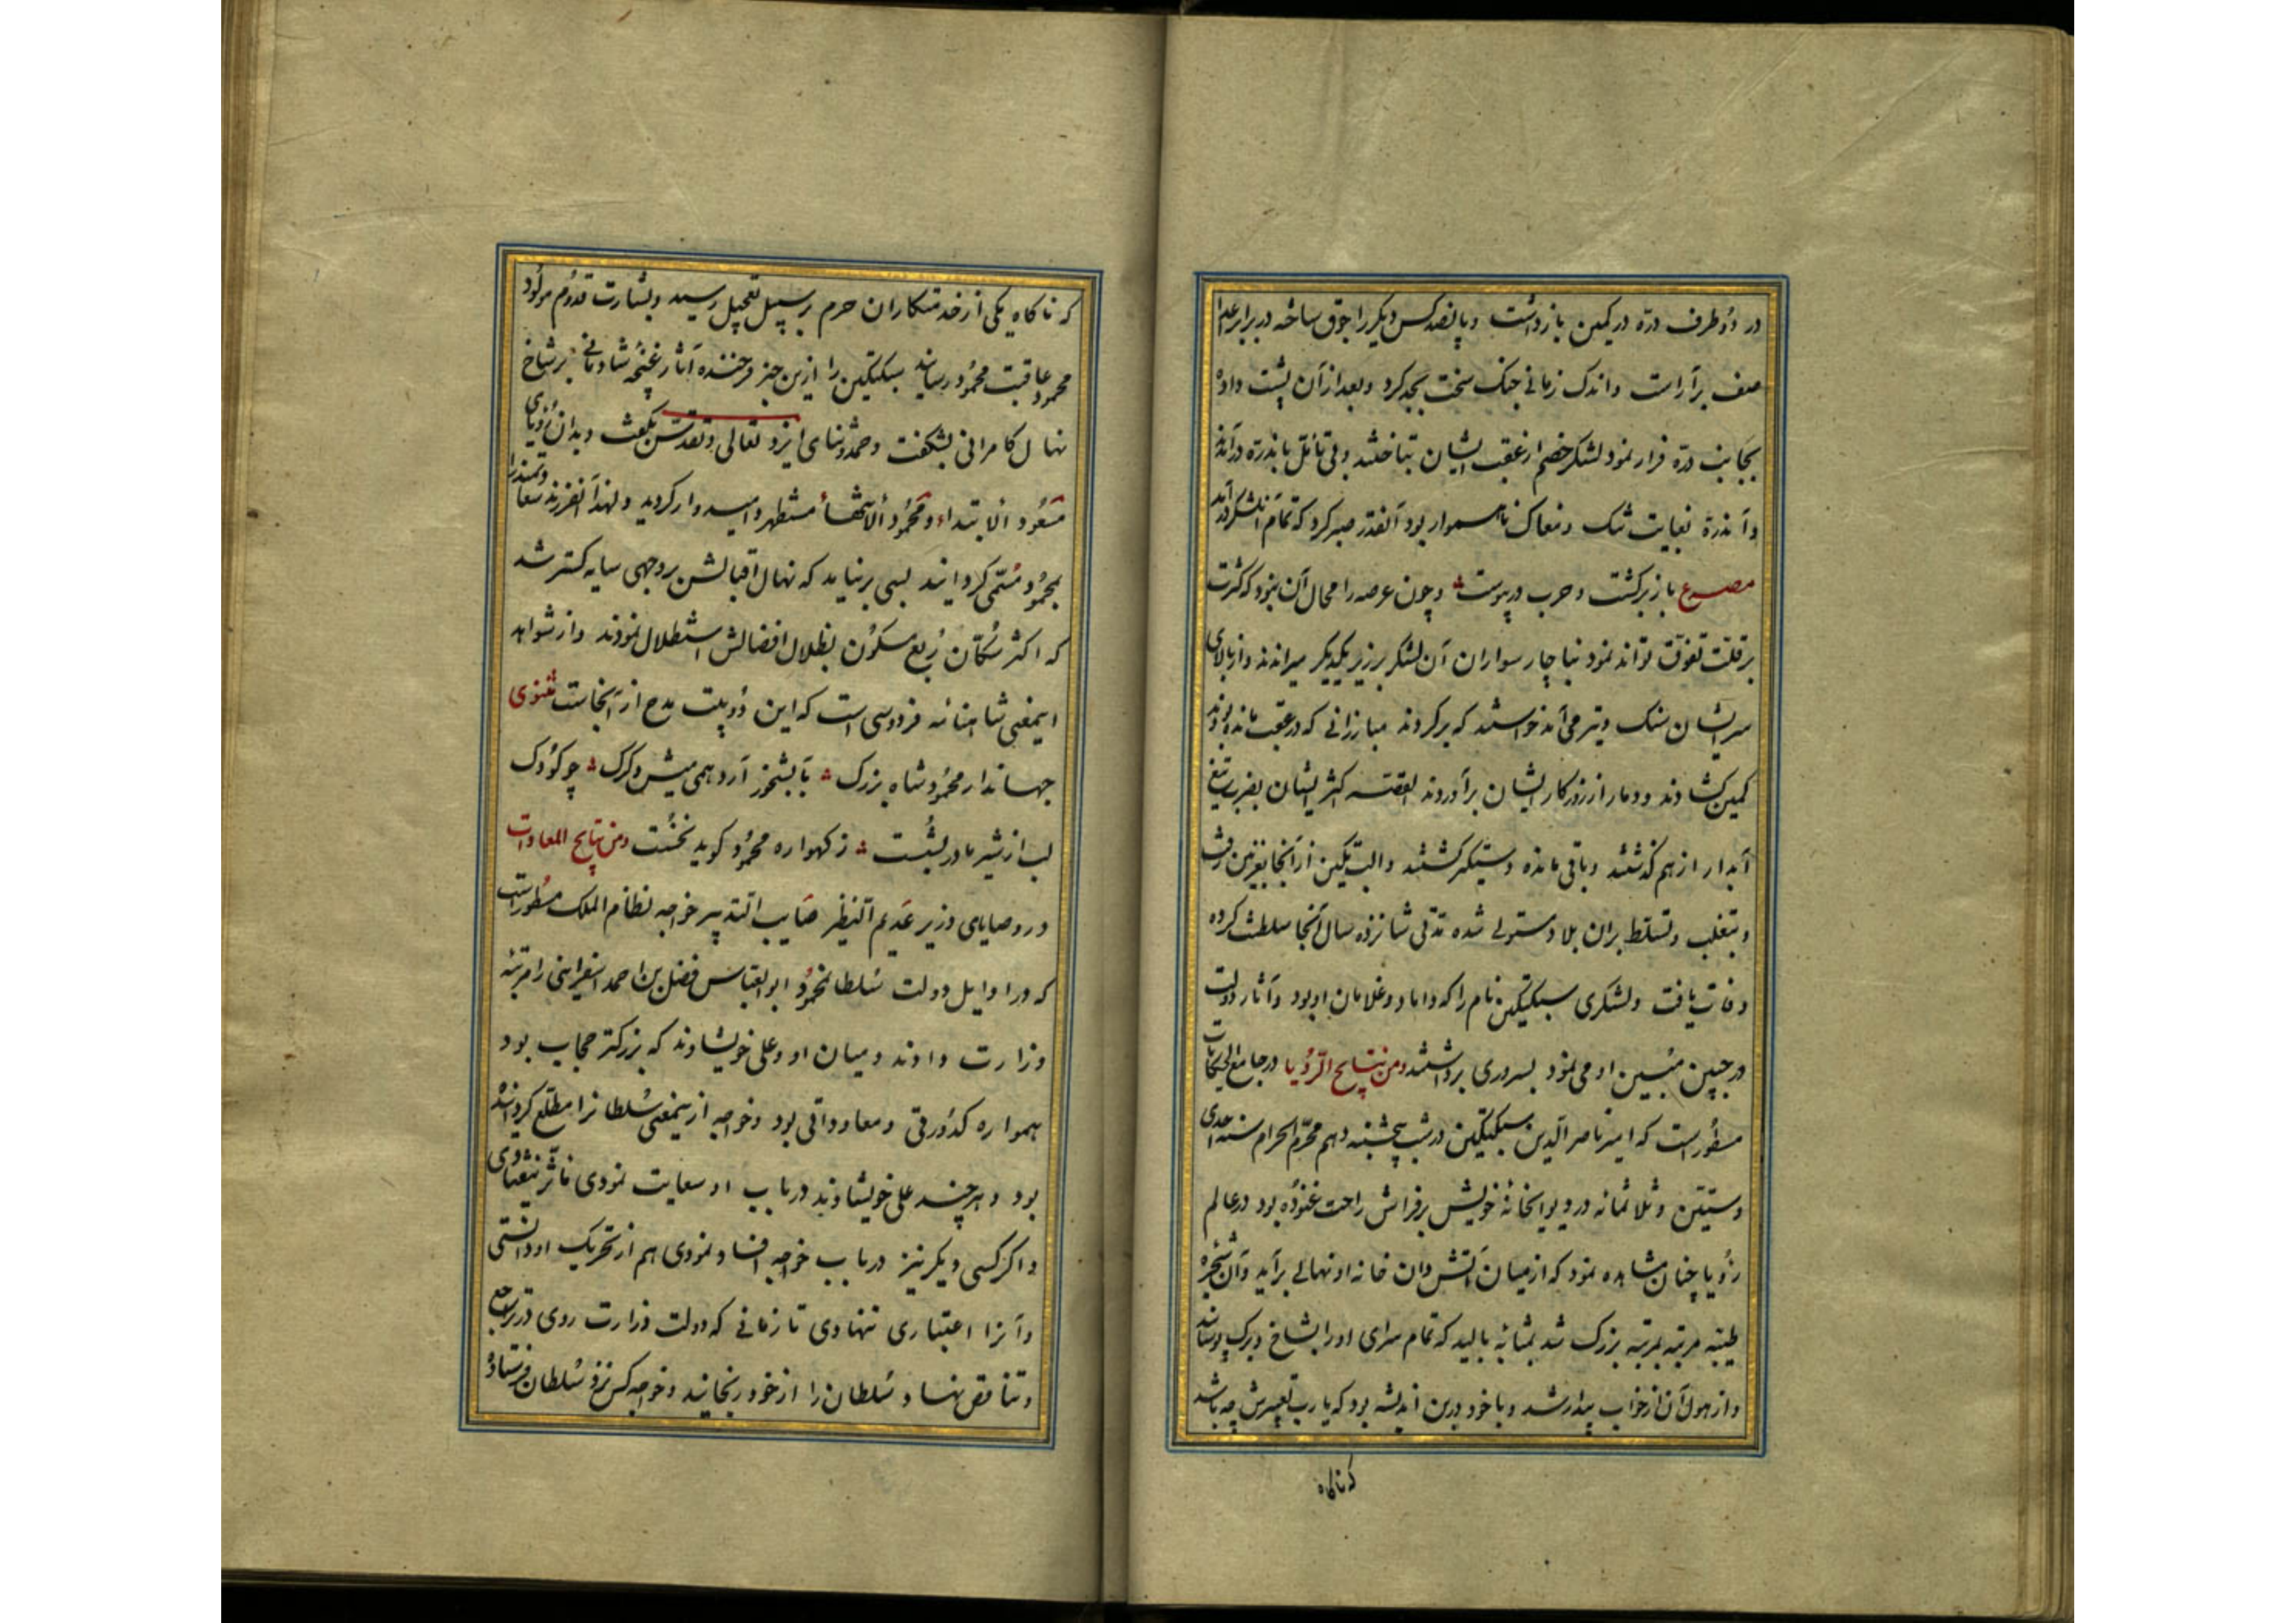 در دو طرف درّه در کمین بازداشت و پانصد کس دیگر را جوق ساخته در برابر اعدا
صف برآراست و اندک زمانی جنک سخت بجد کرد و بعد از آن پشت داده
بجانب درّه فرار نمود لشکر خصم از عقب ایشان بتاختند و بی تأمّل بآندرّه درآمدند
و آندرّه بغایت تنک و مغاک ناهموار بود آنقدر صبر کرد که تمام آن لشکر درآمد
مصرع باز برگشت و حرب درپیوست و چون عرصه را مجال آن نبود که کثرت
بر قلّت تفوّق تواند نمود بناچار سواران آن لشکر بر زبر یکدیگر میراندند و از بالای
سر ایشان سنک و تیر می آمد خواستند که برگردند مبارزانی که در عقب مانده بودند
کمین گشادند و دمار از روزکار ایشان برآوردند القصّه اکثر ایشان بضرب تیغ
آبدار از هم گذشتند و باقی مانده دستگیر گشتند و البتکین از آنجا بغزنین رفت
و بتغلب و تسلّط بران بلاد مستولی شده مدّتی شانزده سال آنجا سلطنت کرده
وفات یافت و لشکری سبکتکین نام را که داماد و غلامان او بود و آثار دولت
در جبین مُبین او می نمود بسروری برداشتند و من نتایح الرّؤیا در جامع الحکایات
مسطور است که امیر ناصر الدین سبکتکین در شب پنجشنبه دهم محرّم الحرام سنه احدی
و ستّین و ثلاثمائه در دیوانخانهٔ خویش بر فراش راحت غنوده بود در عالم
رؤیا چنان مشاهده نمود که از میان آتش دان خانه او نهالی برآید و آن شجرهٔ
طیّبه مرتبه بمرتبه بزرک شد بمثابهٔ بالید که تمام سرای او را بشاخ و برک پوشاند
و از هول آن از خواب بیدار شد و با خود درین اندیشه بود که یا رب تعبیرش چه باشد
که ناکاه
که ناکاه یکی از خدمتکاران حرم بر سبیل تعجیل رسید و بشارت قدوم مولود
محمود عاقبت محمود رسانید سبکتکین را ازین خبر فرخنده آثار غنچهٔ شادمانی بر شاخ
نهال کامرانی بشکفت و حمد و ثنای ایزد تعالی و تقدّس بکفت و بدان رؤیای
مَسعُود الابتداء و محمُود الانتهاء مستظهر و امیدوار کردید و لهذا آنفرزند سعادتمند را
بمحمود مُسمّی کردانید بسی برنیاید که نهال اقبالش بروجهی سایه کستر شد
که اکثر سُکّان رُبع مسکون بظلال افضالش استظلال نمودند و از شواهد
اینمعنی شاهنامه فردوسی است که این دو بیت مدح از آنجاست مثنوی
جهاندار محمود شاه بزرک بآبشخور آرد همی میش و کرک چو کودک
لب از شیر مادر بشُست ز کهواره محمود کوید نخُست و من نتایح المعادات
در وصایای وزیر عدیم النّظیر صایب التدبیر خواجه نظام الملک مسطور است
که در اوایل دولت سُلطان محمود ابو العبّاس فضل بن احمد اسفراینی را مرتبهٔ
وزارت دادند و میان او و علی خویشاوند که بزرکتر حجاب بود
همواره کدُورتی و معاداتی بود و خواجه ازینمعنی سُلطانرا مطّلع کردانیده
بود و هر چند علی خویشاوند در باب او سعایت نمودی
و اکر کسی دیکر نیز در باب خواجه افساد نمودی هم از تحریک او دانستی
و آنرا اعتباری ننهادی تا زمانی که دولت وزارت روی در تراجع
و تناقص نهاد و سُلطان را از خود رنجانید و خواجه کس نزد سُلطان فرستاد